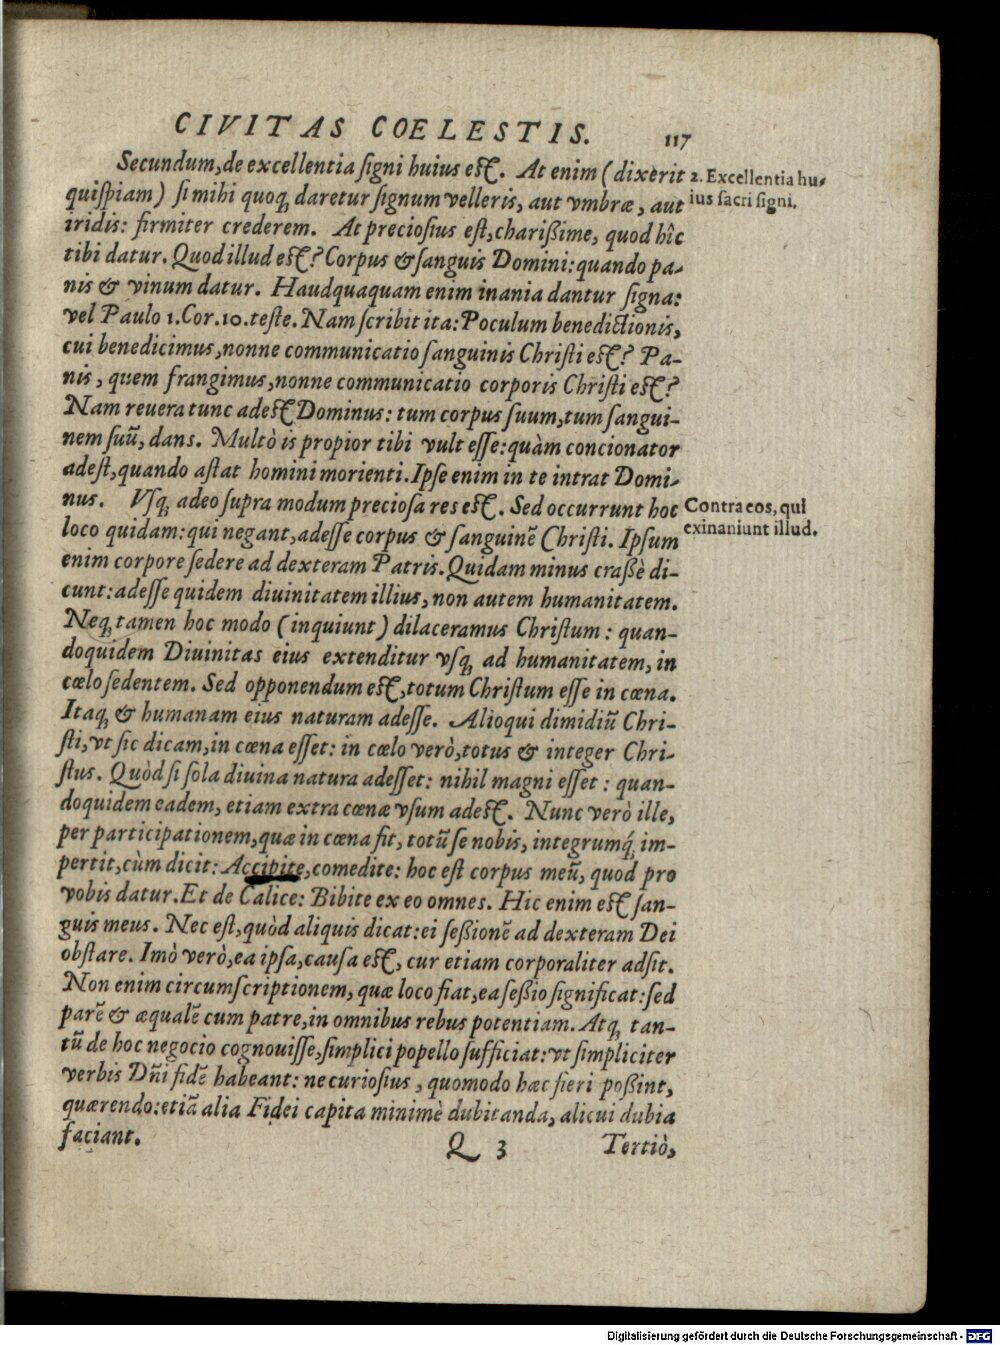 CIVITAS COELESTIS. 117
Secundum, de excellentia ſigni huius eſt. At enim (dixerit
2. Excellentia hu-
quiſpiam) ſi mihi quoq; daretur ſignum velleris, aut vmbræ, aut
ius ſacri ſigni.
iridis: firmiter crederem. At precioſius eſt, chariſsime, quod hîc
tibi datur. Quod illud eſt? Corpus & ſanguis Domini: quando pa-
nis & vinum datur. Haudquaquam enim inania dantur ſigna:
vel Paulo 1. Cor. 10. teſte. Nam ſcribit ita: Poculum benedictionis,
cui benedicimus, nonne communicatio ſanguinis Chriſti eſt? Pa-
nis, quem frangimus, nonne communicatio corporis Chriſti eſt?
Nam reuera tunc adeſt Dominus: tum corpus ſuum, tum ſangui-
nem ſuũ, dans. Multò is propior tibi vult eſſe: quàm concionator
adeſt, quando aſtat homini morienti. Ipſe enim in te intrat Domi-
nus. Vſq; adeo ſupra modum precioſa res eſt. Sed occurrunt hoc
Contra eos, qui
loco quidam: qui negant, adeſſe corpus & ſanguinẽ Chriſti. Ipſum
exinaniunt illud.
enim corpore ſedere ad dexteram Patris. Quidam minus craſsè di-
cunt: adeſſe quidem diuinitatem illius, non autem humanitatem.
Neq; tamen hoc modo (inquiunt) dilaceramus Chriſtum: quan-
doquidem Diuinitas eius extenditur vſq; ad humanitatem, in
cœlo ſedentem. Sed opponendum eſt, totum Chriſtum eſſe in cœna.
Itaq; & humanam eius naturam adeſſe. Alioqui dimidiũ Chri-
ſti, vt ſic dicam, in cœna eſſet: in cœlo verò, totus & integer Chri-
ſtus. Quòd ſi ſola diuina natura adeſſet: nihil magni eſſet: quan-
doquidem eadem, etiam extra cœnæ vſum adeſt. Nunc verò ille,
per participationem, quæ in cœna fit, totũ ſe nobis, integrumq́; im-
pertit, cùm dicit: Accipite, comedite: hoc eſt corpus meũ, quod pro
vobis datur. Et de Calice: Bibite ex eo omnes. Hic enim eſt ſan-
guis meus. Nec eſt, quòd aliquis dicat: ei ſeſsionẽ ad dexteram Dei
obſtare. Imò verò, ea ipſa, cauſa eſt, cur etiam corporaliter adſit.
Non enim circumſcriptionem, quæ loco fiat, ea ſeſsio ſignificat: ſed
parẽ & æqualẽ cum patre, in omnibus rebus potentiam. Atq; tan-
tũ de hoc negocio cognouiſſe, ſimplici popello ſufficiat: vt ſimpliciter
verbis Dñi fidẽ habeant: ne curioſius, quomodo hæc fieri poſsint,
quærendo: etiã alia Fidei capita minimè dubitanda, alicui dubia
faciant.
Q 3 Tertiò,
Digitalisierung gefördert durch die Deutsche Forschungsgemeinschaft - DFG